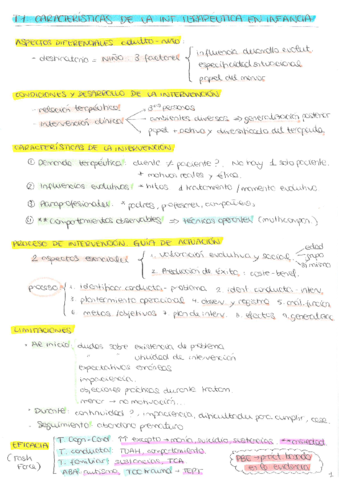 T.1 CARACTERÍSTICAS DE LA INT. TERAPEUTICA EN INFANCIA
ASPECTOS DIFERENCIALES adulto-niño
- destinatario = NIÑO : 3 factores
influencia desarrollo evolut.
especificidad situacional
papel del menor
CONDICIONES Y DESARROLLO DE LA INTERVENCIÓN
- relación terapéutica
- intervención clínica
3as personas
ambientes diversos => generalización posterior
papel + activo y diversificado del terapeuta
CARACTERÍSTICAS DE LA INTERVENCIÓN
① Demanda terapéutica: cliente ≠ paciente? No hay 1 solo paciente.
+ motivos reales y ética.
② Influencias evolutivas: + hitos δ tratamiento / momento evolutivo
③ Paraprofesionales: + padres, profesores, compañeros,
④ ** Comportamientos observables => técnicas operantes (multicompon.)
PROCESO DE INTERVENCIÓN. GUÍA DE ACTUACIÓN
2 aspectos esenciales
1. valoración evolutiva y social
edad
grupo
sí mismo
2. Predicción de éxito: coste-benef.
proceso
1. Identificar conducta-problema 2. identi. conducta interv.
3. planteamiento operacional 4. observ. y registro 5. anál. función
6. metas (objetivos) 7. plan de interv. 8. efectos 9. generalizac
LIMITACIONES
- Al inicio: dudas sobre existencia de problema
" " utilidad de intervención
expectativas erróneas
impaciencia
objeciones prácticas durante tratam
menor -> no motivación...
- Durante: continuidad?, impaciencia, dificultades para cumplir, cese
- Seguimiento: abandono prematuro
EFICACIA
T. Cogn-Cond TT excepto -> manía, suicidio, sustancias **ansiedad
T. conducta: TDAH, comportamiento
T. familiar: sustancias, TCA
ABA: autismo, TCC trauma -> TEPT
PBE -> pract. basada en la evidencia
1